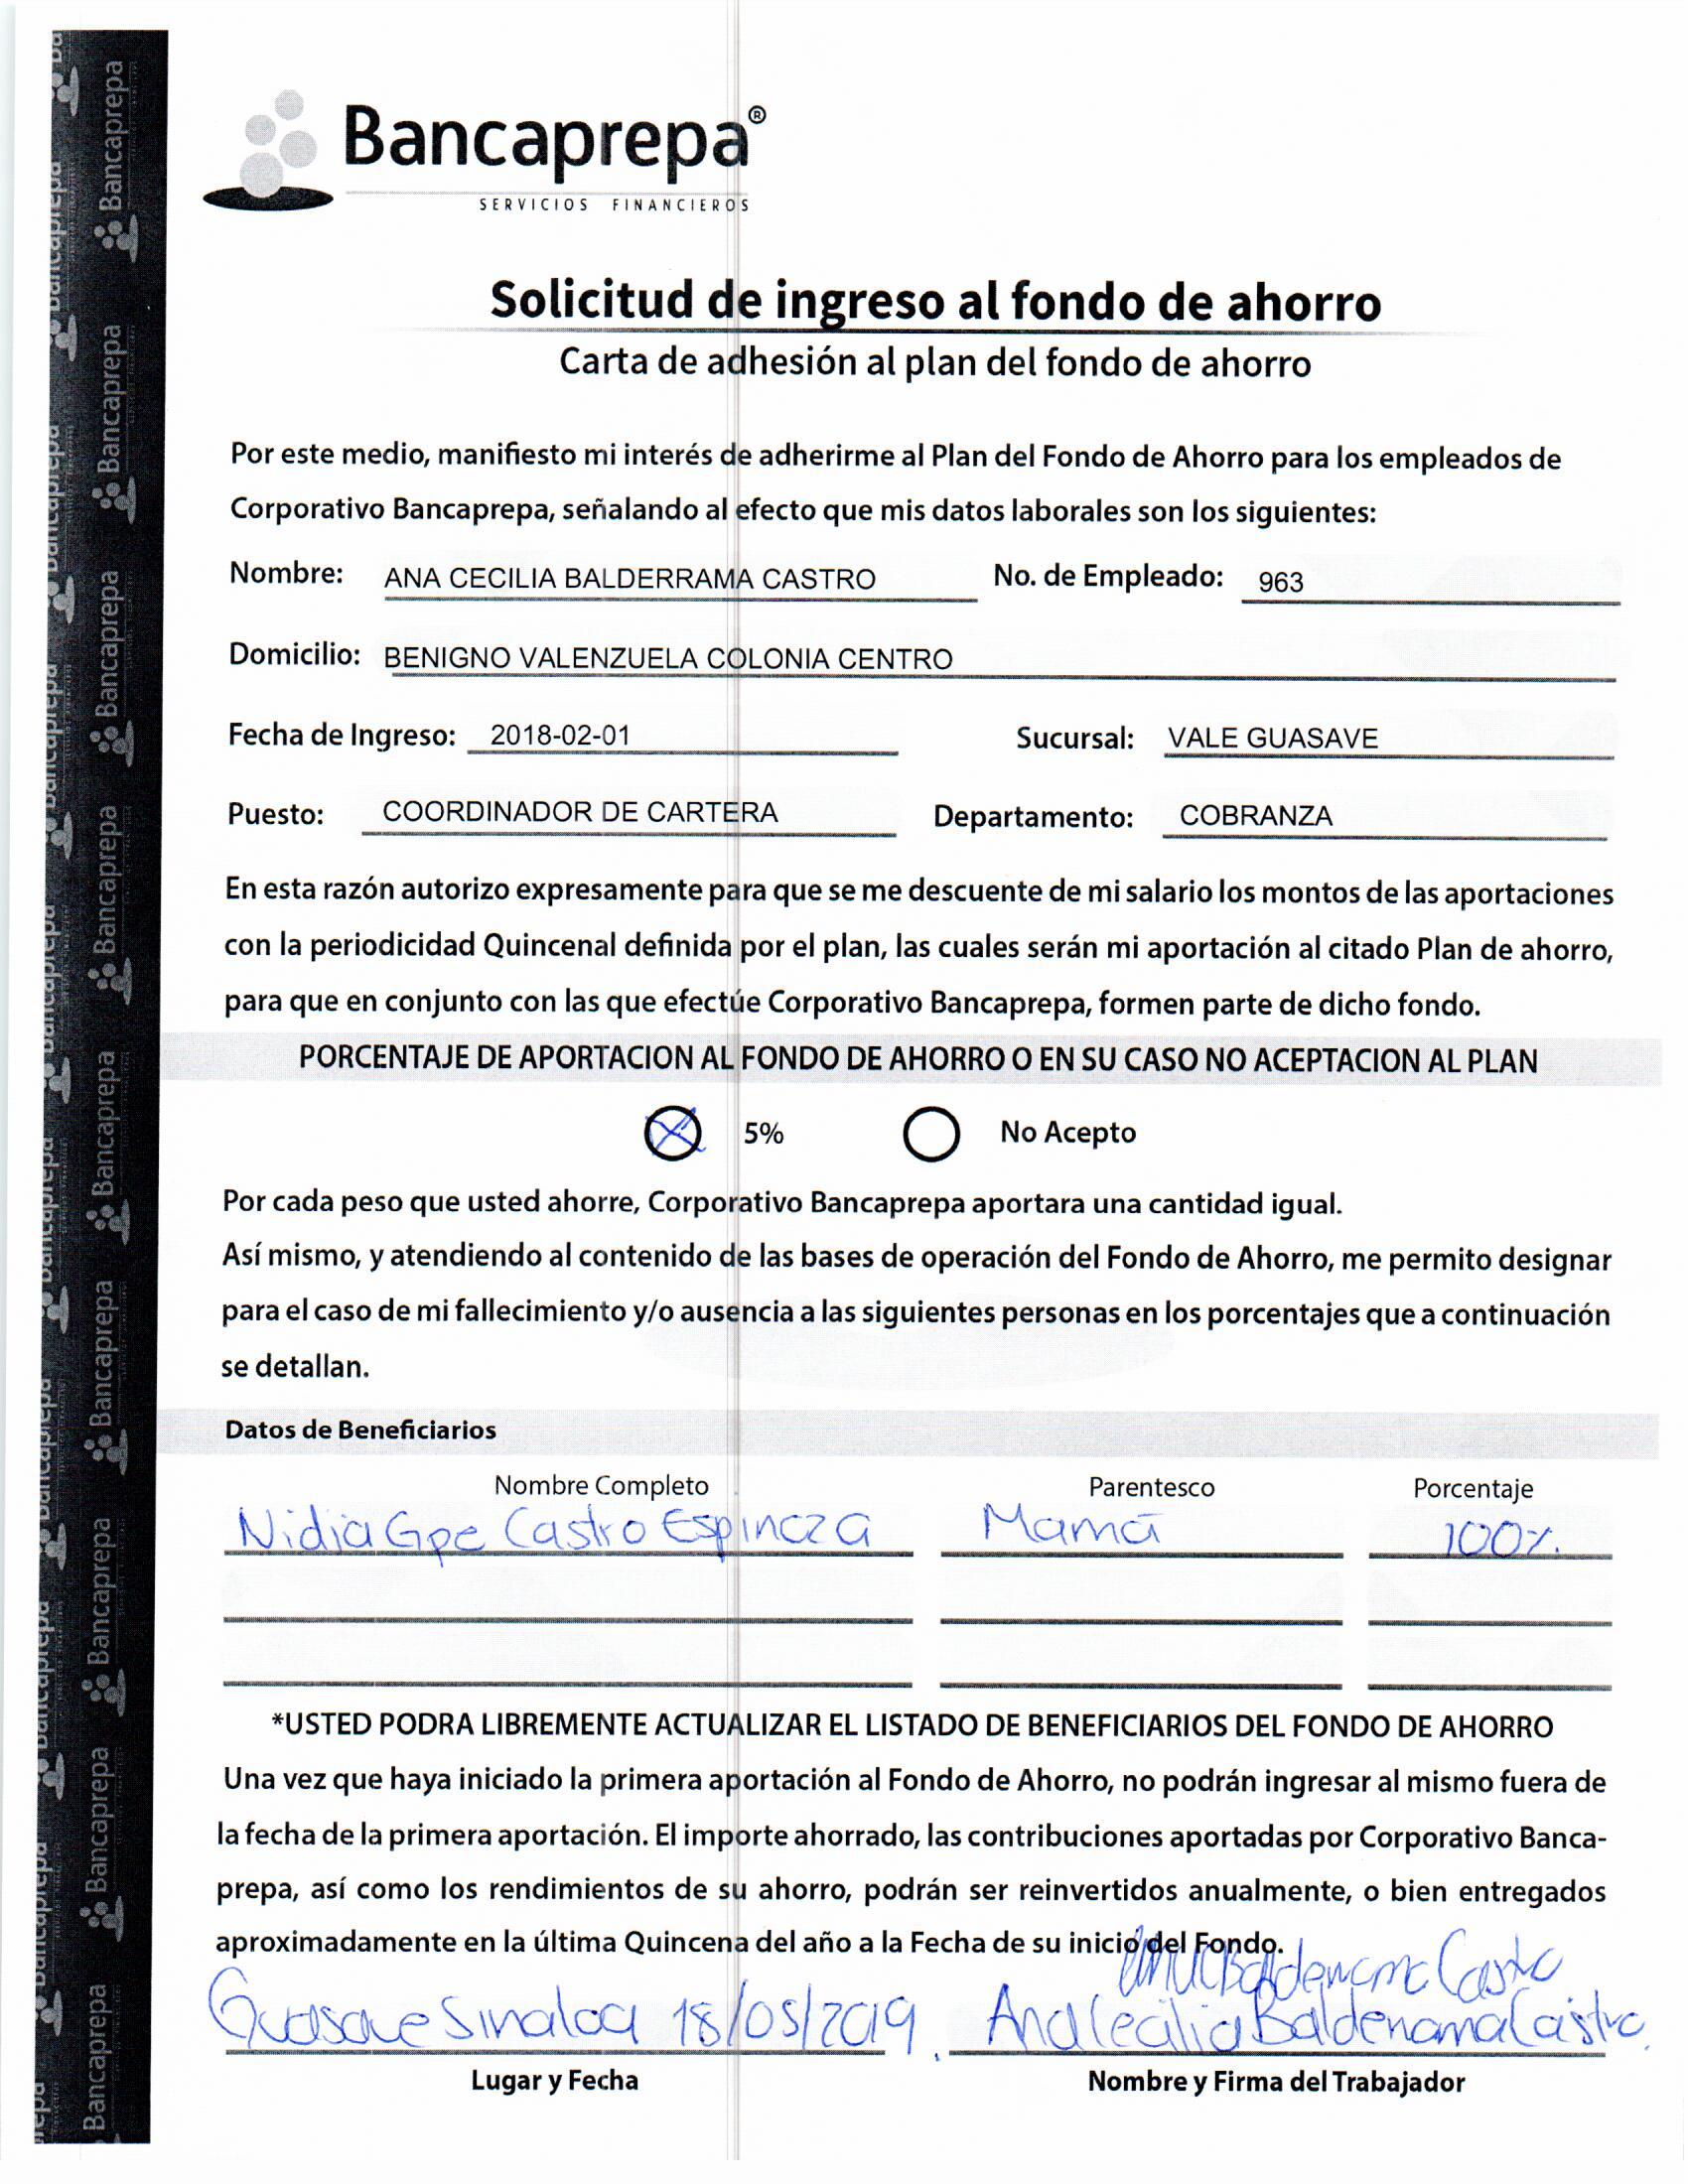 Bancaprepa®
SERVICIOS FINANCIEROS
Solicitud de ingreso al fondo de ahorro
Carta de adhesión al plan del fondo de ahorro
Por este medio, manifiesto mi interés de adherirme al Plan del Fondo de Ahorro para los empleados de
Corporativo Bancaprepa, señalando al efecto que mis datos laborales son los siguientes:
Nombre: ANA CECILIA BALDERRAMA CASTRO No. de Empleado: 963
Domicilio: BENIGNO VALENZUELA COLONIA CENTRO
Fecha de Ingreso: 2018-02-01 Sucursal: VALE GUASAVE
Puesto: COORDINADOR DE CARTERA Departamento: COBRANZA
En esta razón autorizo expresamente para que se me descuente de mi salario los montos de las aportaciones
con la periodicidad Quincenal definida por el plan, las cuales serán mi aportación al citado Plan de ahorro,
para que en conjunto con las que efectúe Corporativo Bancaprepa, formen parte de dicho fondo.
PORCENTAJE DE APORTACION AL FONDO DE AHORRO O EN SU CASO NO ACEPTACION AL PLAN
5% No Acepto
Por cada peso que usted ahorre, Corporativo Bancaprepa aportara una cantidad igual.
Así mismo, y atendiendo al contenido de las bases de operación del Fondo de Ahorro, me permito designar
para el caso de mi fallecimiento y/o ausencia a las siguientes personas en los porcentajes que a continuación
se detallan.
Datos de Beneficiarios
Nombre Completo Parentesco Porcentaje
Nidia Gpe Castro Espinoza Mamá 100%.
*USTED PODRA LIBREMENTE ACTUALIZAR EL LISTADO DE BENEFICIARIOS DEL FONDO DE AHORRO
Una vez que haya iniciado la primera aportación al Fondo de Ahorro, no podrán ingresar al mismo fuera de
la fecha de la primera aportación. El importe ahorrado, las contribuciones aportadas por Corporativo Banca-
prepa, así como los rendimientos de su ahorro, podrán ser reinvertidos anualmente, o bien entregados
aproximadamente en la última Quincena del año a la Fecha de su inicio del Fondo.
Balderrama Castro
Guasave Sinaloa 18/05/2019. Ana Cecilia Balderrama Castro.
Lugar y Fecha Nombre y Firma del Trabajador